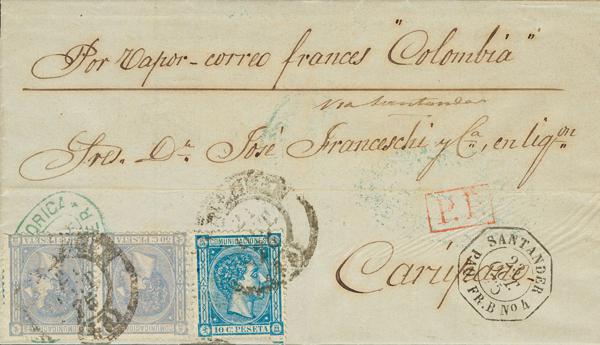 Por Vapor-correo frances "Colombia"
via Santander
Sres. Dn. José Franceschi y Ca, en liqon
P.P.
Carúpano
SANTANDER
PAQ. FR. B No 4
COMUNICACIONES
10 C. PESETA